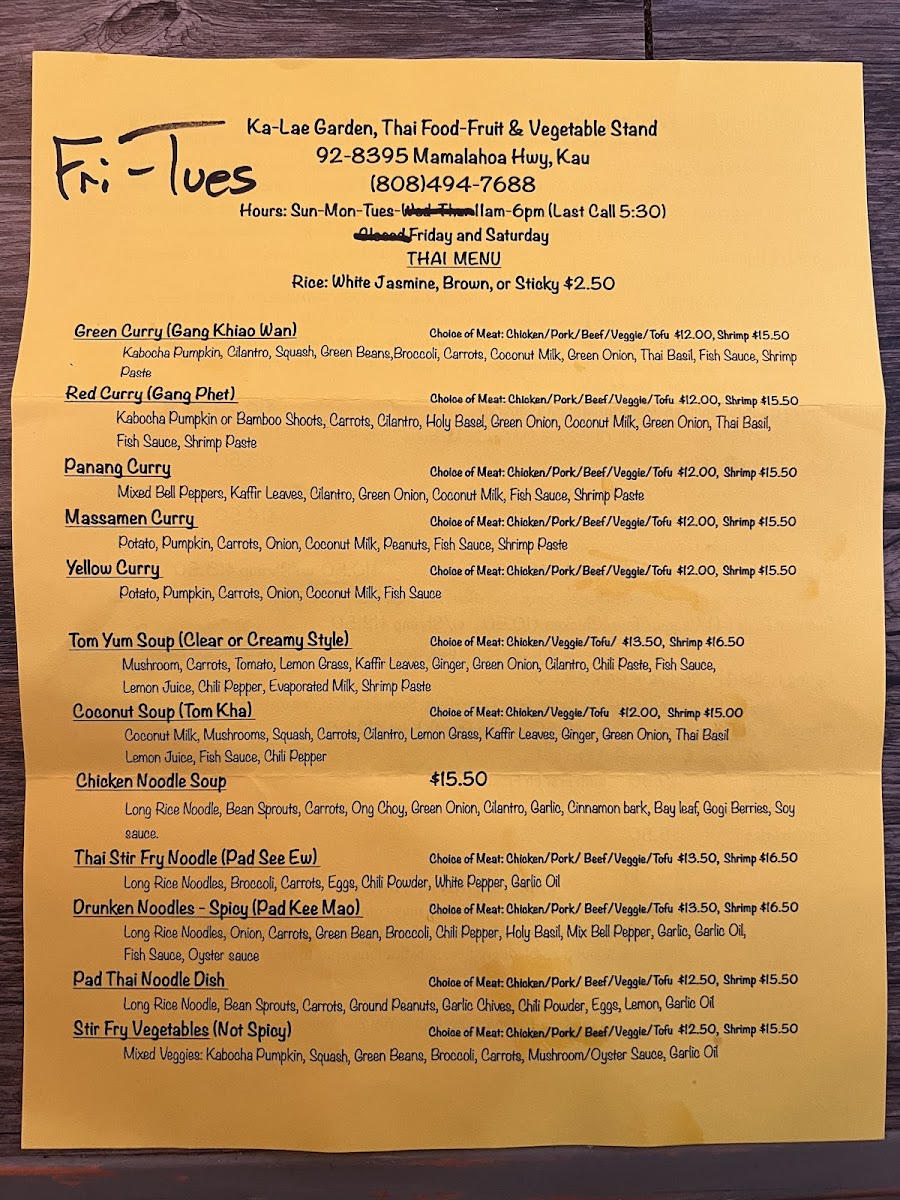 Fri-Tues
Ka-Lae Garden, Thai Food-Fruit & Vegetable Stand
92-8395 Mamalahoa Hwy, Kau
(808)494-7688
Hours: Sun-Mon-Tues-Wed-Thur 11am-6pm (Last Call 5:30)
Closed Friday and Saturday
THAI MENU
Rice: White Jasmine, Brown, or Sticky $2.50
Green Curry (Gang Khiao Wan) Choice of Meat: Chicken/Pork/Beef/Veggie/Tofu $12.00, Shrimp $15.50
Kabocha Pumpkin, Cilantro, Squash, Green Beans,Broccoli, Carrots, Coconut Milk, Green Onion, Thai Basil, Fish Sauce, Shrimp
Paste
Red Curry (Gang Phet) Choice of Meat: Chicken/Pork/Beef/Veggie/Tofu $12.00, Shrimp $15.50
Kabocha Pumpkin or Bamboo Shoots, Carrots, Cilantro, Holy Basel, Green Onion, Coconut Milk, Green Onion, Thai Basil,
Fish Sauce, Shrimp Paste
Panang Curry Choice of Meat: Chicken/Pork/Beef/Veggie/Tofu $12.00, Shrimp $15.50
Mixed Bell Peppers, Kaffir Leaves, Cilantro, Green Onion, Coconut Milk, Fish Sauce, Shrimp Paste
Massamen Curry Choice of Meat: Chicken/Pork/Beef/Veggie/Tofu $12.00, Shrimp $15.50
Potato, Pumpkin, Carrots, Onion, Coconut Milk, Peanuts, Fish Sauce, Shrimp Paste
Yellow Curry Choice of Meat: Chicken/Pork/Beef/Veggie/Tofu $12.00, Shrimp $15.50
Potato, Pumpkin, Carrots, Onion, Coconut Milk, Fish Sauce
Tom Yum Soup (Clear or Creamy Style) Choice of Meat: Chicken/Veggie/Tofu/ $13.50, Shrimp $16.50
Mushroom, Carrots, Tomato, Lemon Grass, Kaffir Leaves, Ginger, Green Onion, Cilantro, Chili Paste, Fish Sauce,
Lemon Juice, Chili Pepper, Evaporated Milk, Shrimp Paste
Coconut Soup (Tom Kha) Choice of Meat: Chicken/Veggie/Tofu $12.00, Shrimp $15.00
Coconut Milk, Mushrooms, Squash, Carrots, Cilantro, Lemon Grass, Kaffir Leaves, Ginger, Green Onion, Thai Basil
Lemon Juice, Fish Sauce, Chili Pepper
Chicken Noodle Soup $15.50
Long Rice Noodle, Bean Sprouts, Carrots, Ong Choy, Green Onion, Cilantro, Garlic, Cinnamon bark, Bay leaf, Gogi Berries, Soy
sauce.
Thai Stir Fry Noodle (Pad See Ew) Choice of Meat: Chicken/Pork/ Beef/Veggie/Tofu $13.50, Shrimp $16.50
Long Rice Noodles, Broccoli, Carrots, Eggs, Chili Powder, White Pepper, Garlic Oil
Drunken Noodles - Spicy (Pad Kee Mao) Choice of Meat: Chicken/Pork/ Beef/Veggie/Tofu $13.50, Shrimp $16.50
Long Rice Noodles, Onion, Carrots, Green Bean, Broccoli, Chili Pepper, Holy Basil, Mix Bell Pepper, Garlic, Garlic Oil,
Fish Sauce, Oyster sauce
Pad Thai Noodle Dish Choice of Meat: Chicken/Pork/ Beef/Veggie/Tofu $12.50, Shrimp $15.50
Long Rice Noodle, Bean Sprouts, Carrots, Ground Peanuts, Garlic Chives, Chili Powder, Eggs, Lemon, Garlic Oil
Stir Fry Vegetables (Not Spicy) Choice of Meat: Chicken/Pork/ Beef/Veggie/Tofu $12.50, Shrimp $15.50
Mixed Veggies: Kabocha Pumpkin, Squash, Green Beans, Broccoli, Carrots, Mushroom/Oyster Sauce, Garlic Oil